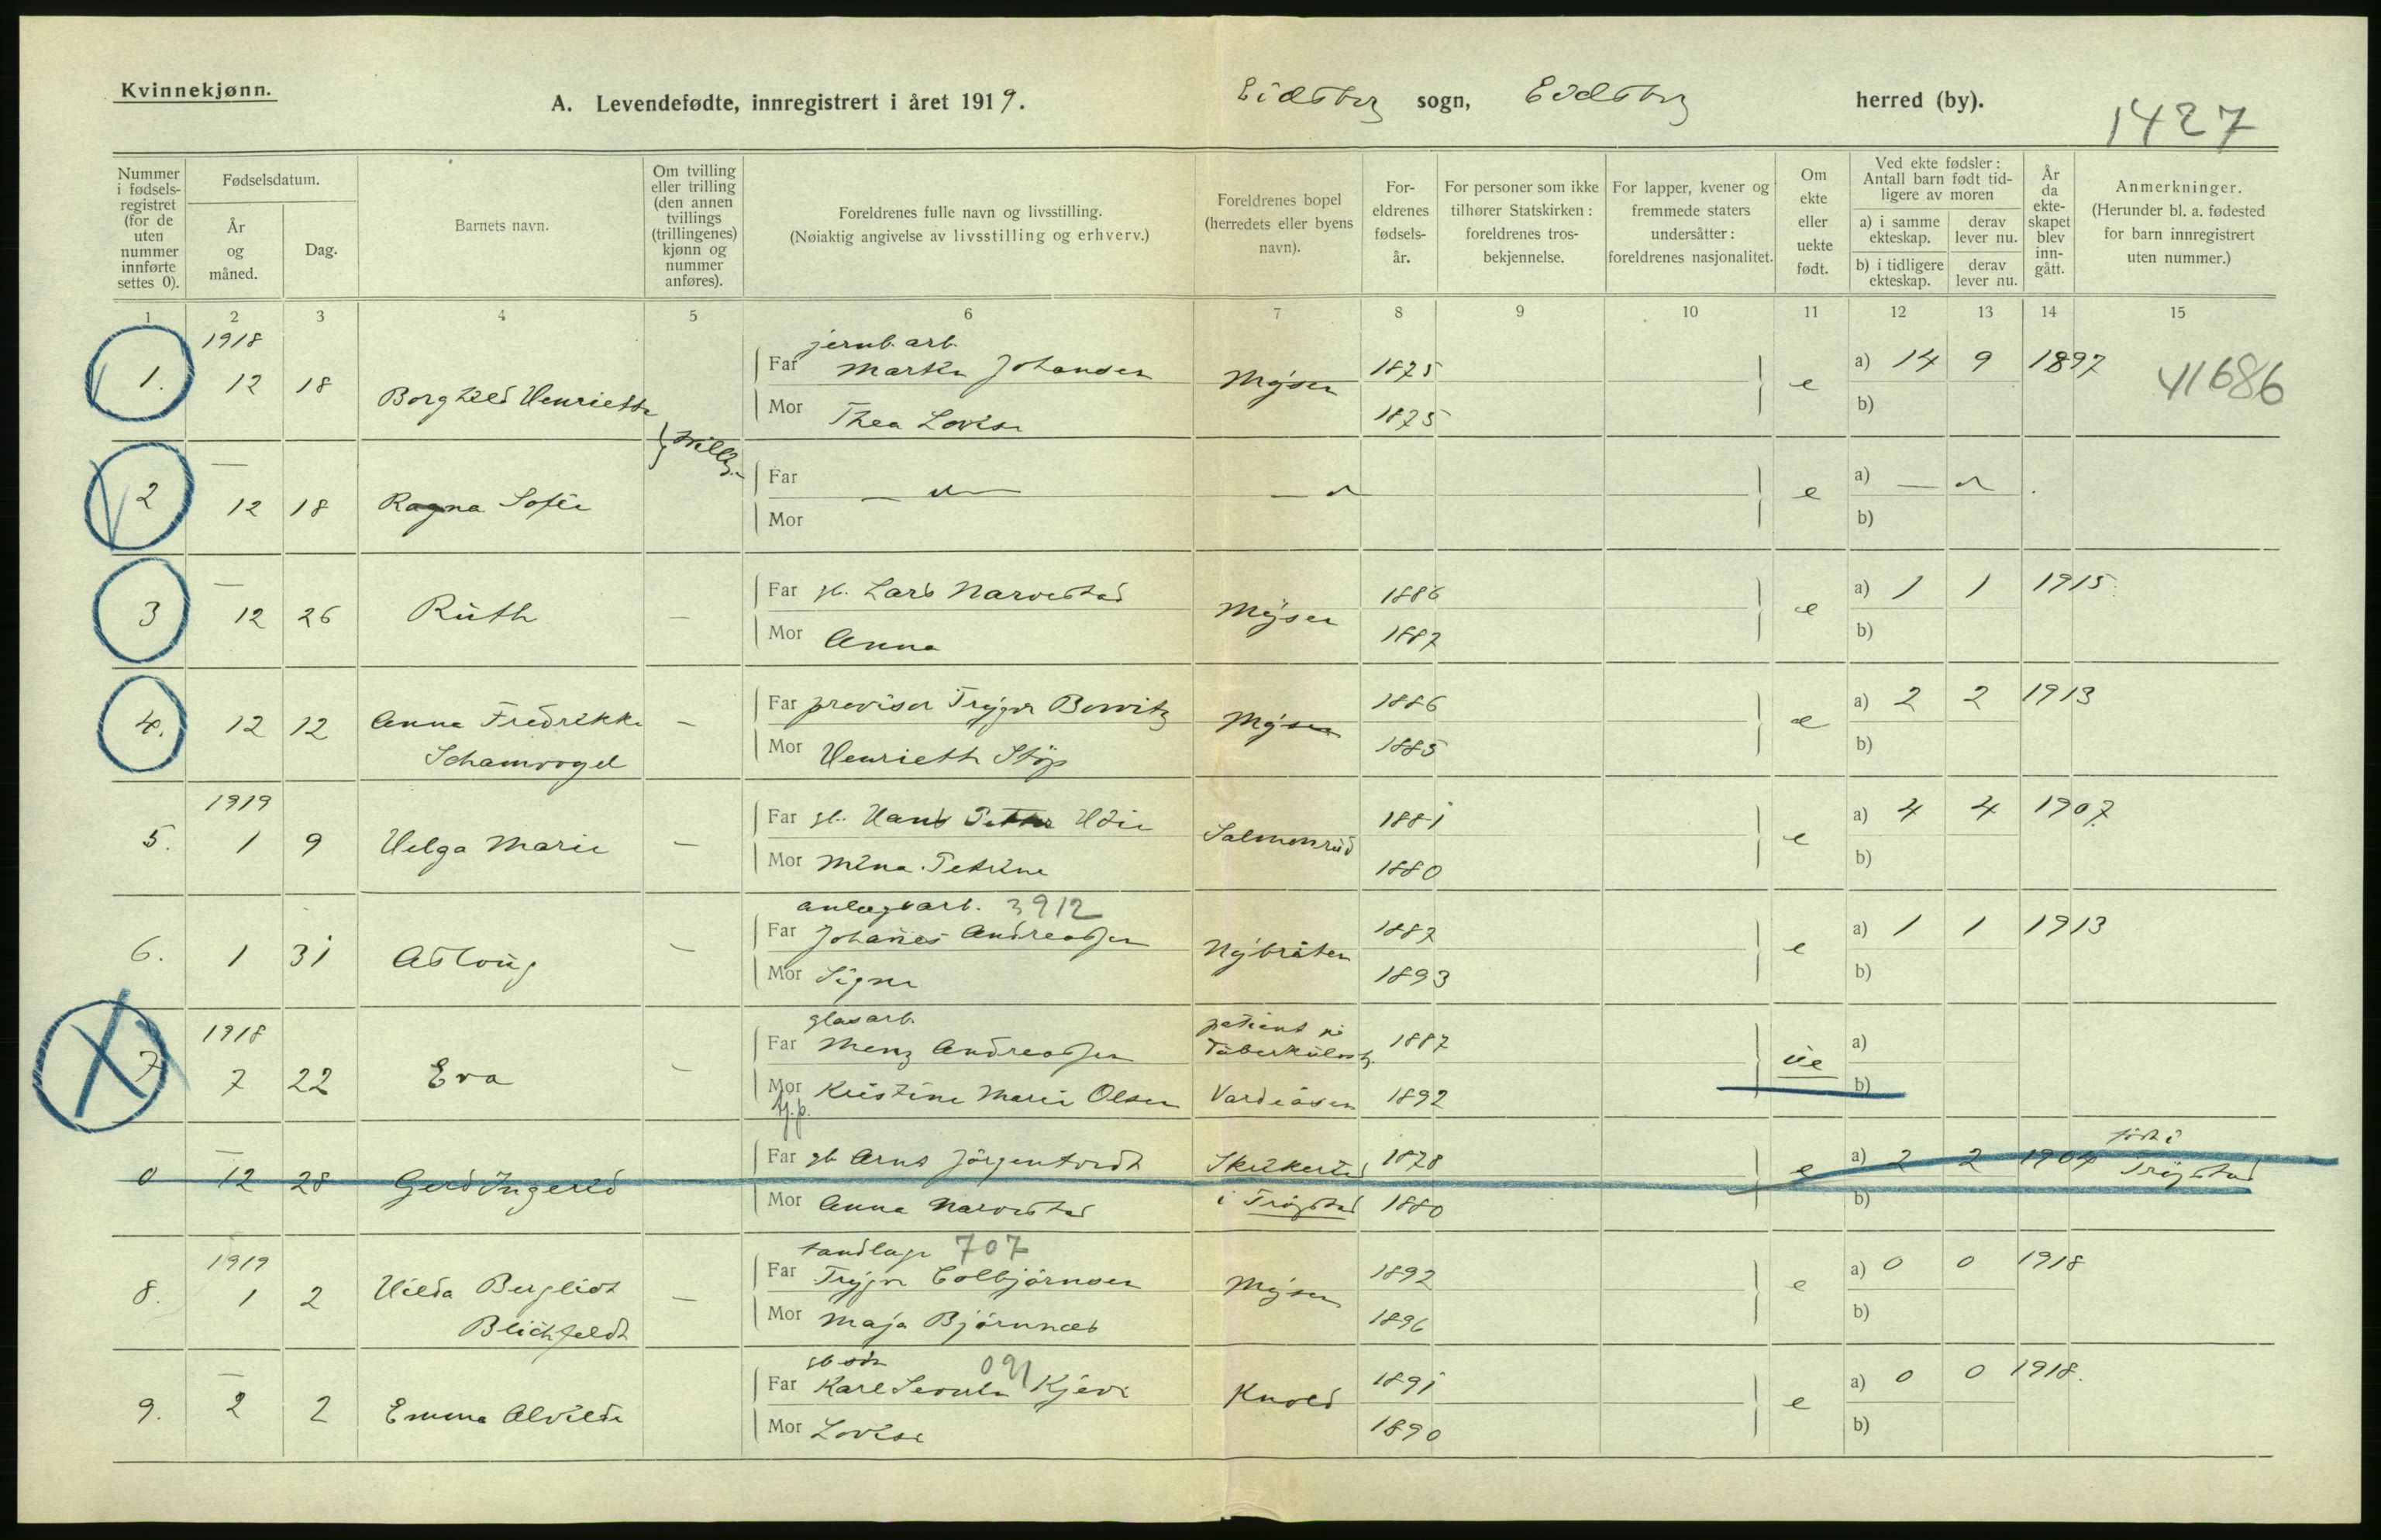 Kvinnekjønn.
A. Levendefødte, innregistrert i året 1919. Eidsberg sogn, Eidsberg herred (by).
1427
Nummer i fødselsregistret (for de uten nummer innførte settes 0).
Fødselsdatum.
År og måned.
Dag.
Barnets navn.
Om tvilling eller trilling (den annen tvillings (trillingenes) kjønn og nummer anføres).
Foreldrenes fulle navn og livsstilling.
(Nøiaktig angivelse av livsstilling og erhverv.)
Foreldrenes bopel (herredets eller byens navn).
Foreldrenes fødselsår.
For personer som ikke tilhører Statskirken: foreldrenes trosbekjennelse.
For lapper, kvener og fremmede staters undersåtter: foreldrenes nasjonalitet.
Om ekte eller uekte født.
Ved ekte fødsler: Antall barn født tidligere av moren
a) i samme ekteskap.
derav lever nu.
b) i tidligere ekteskap.
derav lever nu.
År da ekteskapet blev inngått.
Anmerkninger.
(Herunder bl. a. fødested for barn innregistrert uten nummer.)
1 2 3 4 5 6 7 8 9 10 11 12 13 14 15
1918 jernb. arb.
1. 12 18 Borghild Henriette Far Martin Johansen Mysen 1875 e a) 14 9 1897 41686
Mor Thea Lovise 1875 b)
} tvilling
2 — 12 18 Ragna Sofie Far — " — — " e a) — "
Mor b)
3 — 12 26 Ruth — Far gb. Lars Narvestad Mysen 1886 e a) 1 1 1915
Mor Anna 1887 b)
4. 12 12 Anna Fredrikke — Far provisor Trygve Bowitz Mysen 1886 e a) 2 2 1913
Schamvogel Mor Henriette Støp 1885 b)
1919
5. 1 9 Helga Marie — Far gb. Hans Petter Salmonrud 1881 e a) 4 4 1907
Mor Mina Petrine 1880 b)
anlegsarb. 3912
6. 1 31 Aslaug — Far Johannes Andreassen Nybråten 1887 e a) 1 1 1913
Mor Signe 1893 b)
1918 glasarb. patient på
7 7 22 Eva — Far Menz Andreassen Tuberkulosehj. 1887 ue a)
Mor Kristine Marie Olsen Vardeåsen 1892 b)
tj.p.
født i
0 — 12 28 Gerd Ingerid Far gb. Arnt Jörgen 1878 e a) 2 2 1904 Trøgstad
Mor Anna Narvestad i Trøgstad 1880 b)
1919 tandlæge 707
8. 1 2 Hilda Bergliot — Far Trygve Colbjørnsen Mysen 1892 e a) 0 0 1918
Blichfeldt Mor Maja Bjørnnæs 1896 b)
gb.søn 091
9. — 2 2 Emma Alvilde Far Karl 1891 e a) 0 0 1918.
Mor Lovise 1890 b)